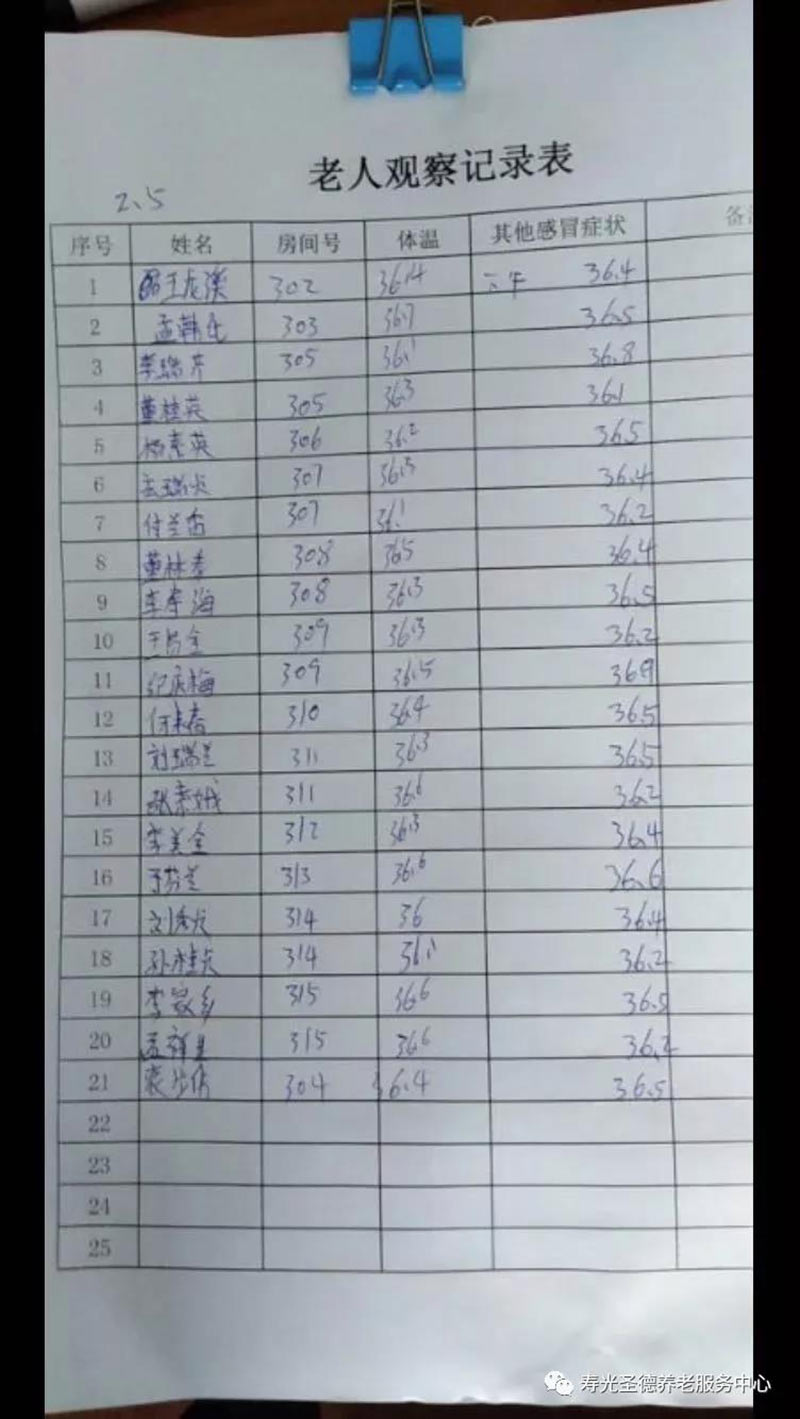 老人观察记录表
2.5
序号 姓名 房间号 体温 其他感冒症状
1 王龙溪 302 36.4 下午 36.4
2 303 36.7 36.5
3 李瑞芹 305 36.1 36.8
4 董桂英 305 36.3 36.1
5 杨秀英 306 36.2 36.5
6 307 36.3 36.4
7 付兰香 307 36.1 36.2
8 董林秀 308 365 36.4
9 李孝海 308 36.3 36.5
10 309 36.3 36.2
11 纪庆梅 309 36.5 36.9
12 何来春 310 36.4 36.5
13 刘瑞兰 311 36.3 36.5
14 311 36.6 36.2
15 李美金 312 36.3 36.4
16 于芬兰 313 36.6 36.6
17 314 36 36.4
18 孙桂贞 314 36.1 36.2
19 李家乡 315 36.6 36.5
20 315 36.6 36.2
21 304 36.4 36.5
22
23
24
25
寿光圣德养老服务中心